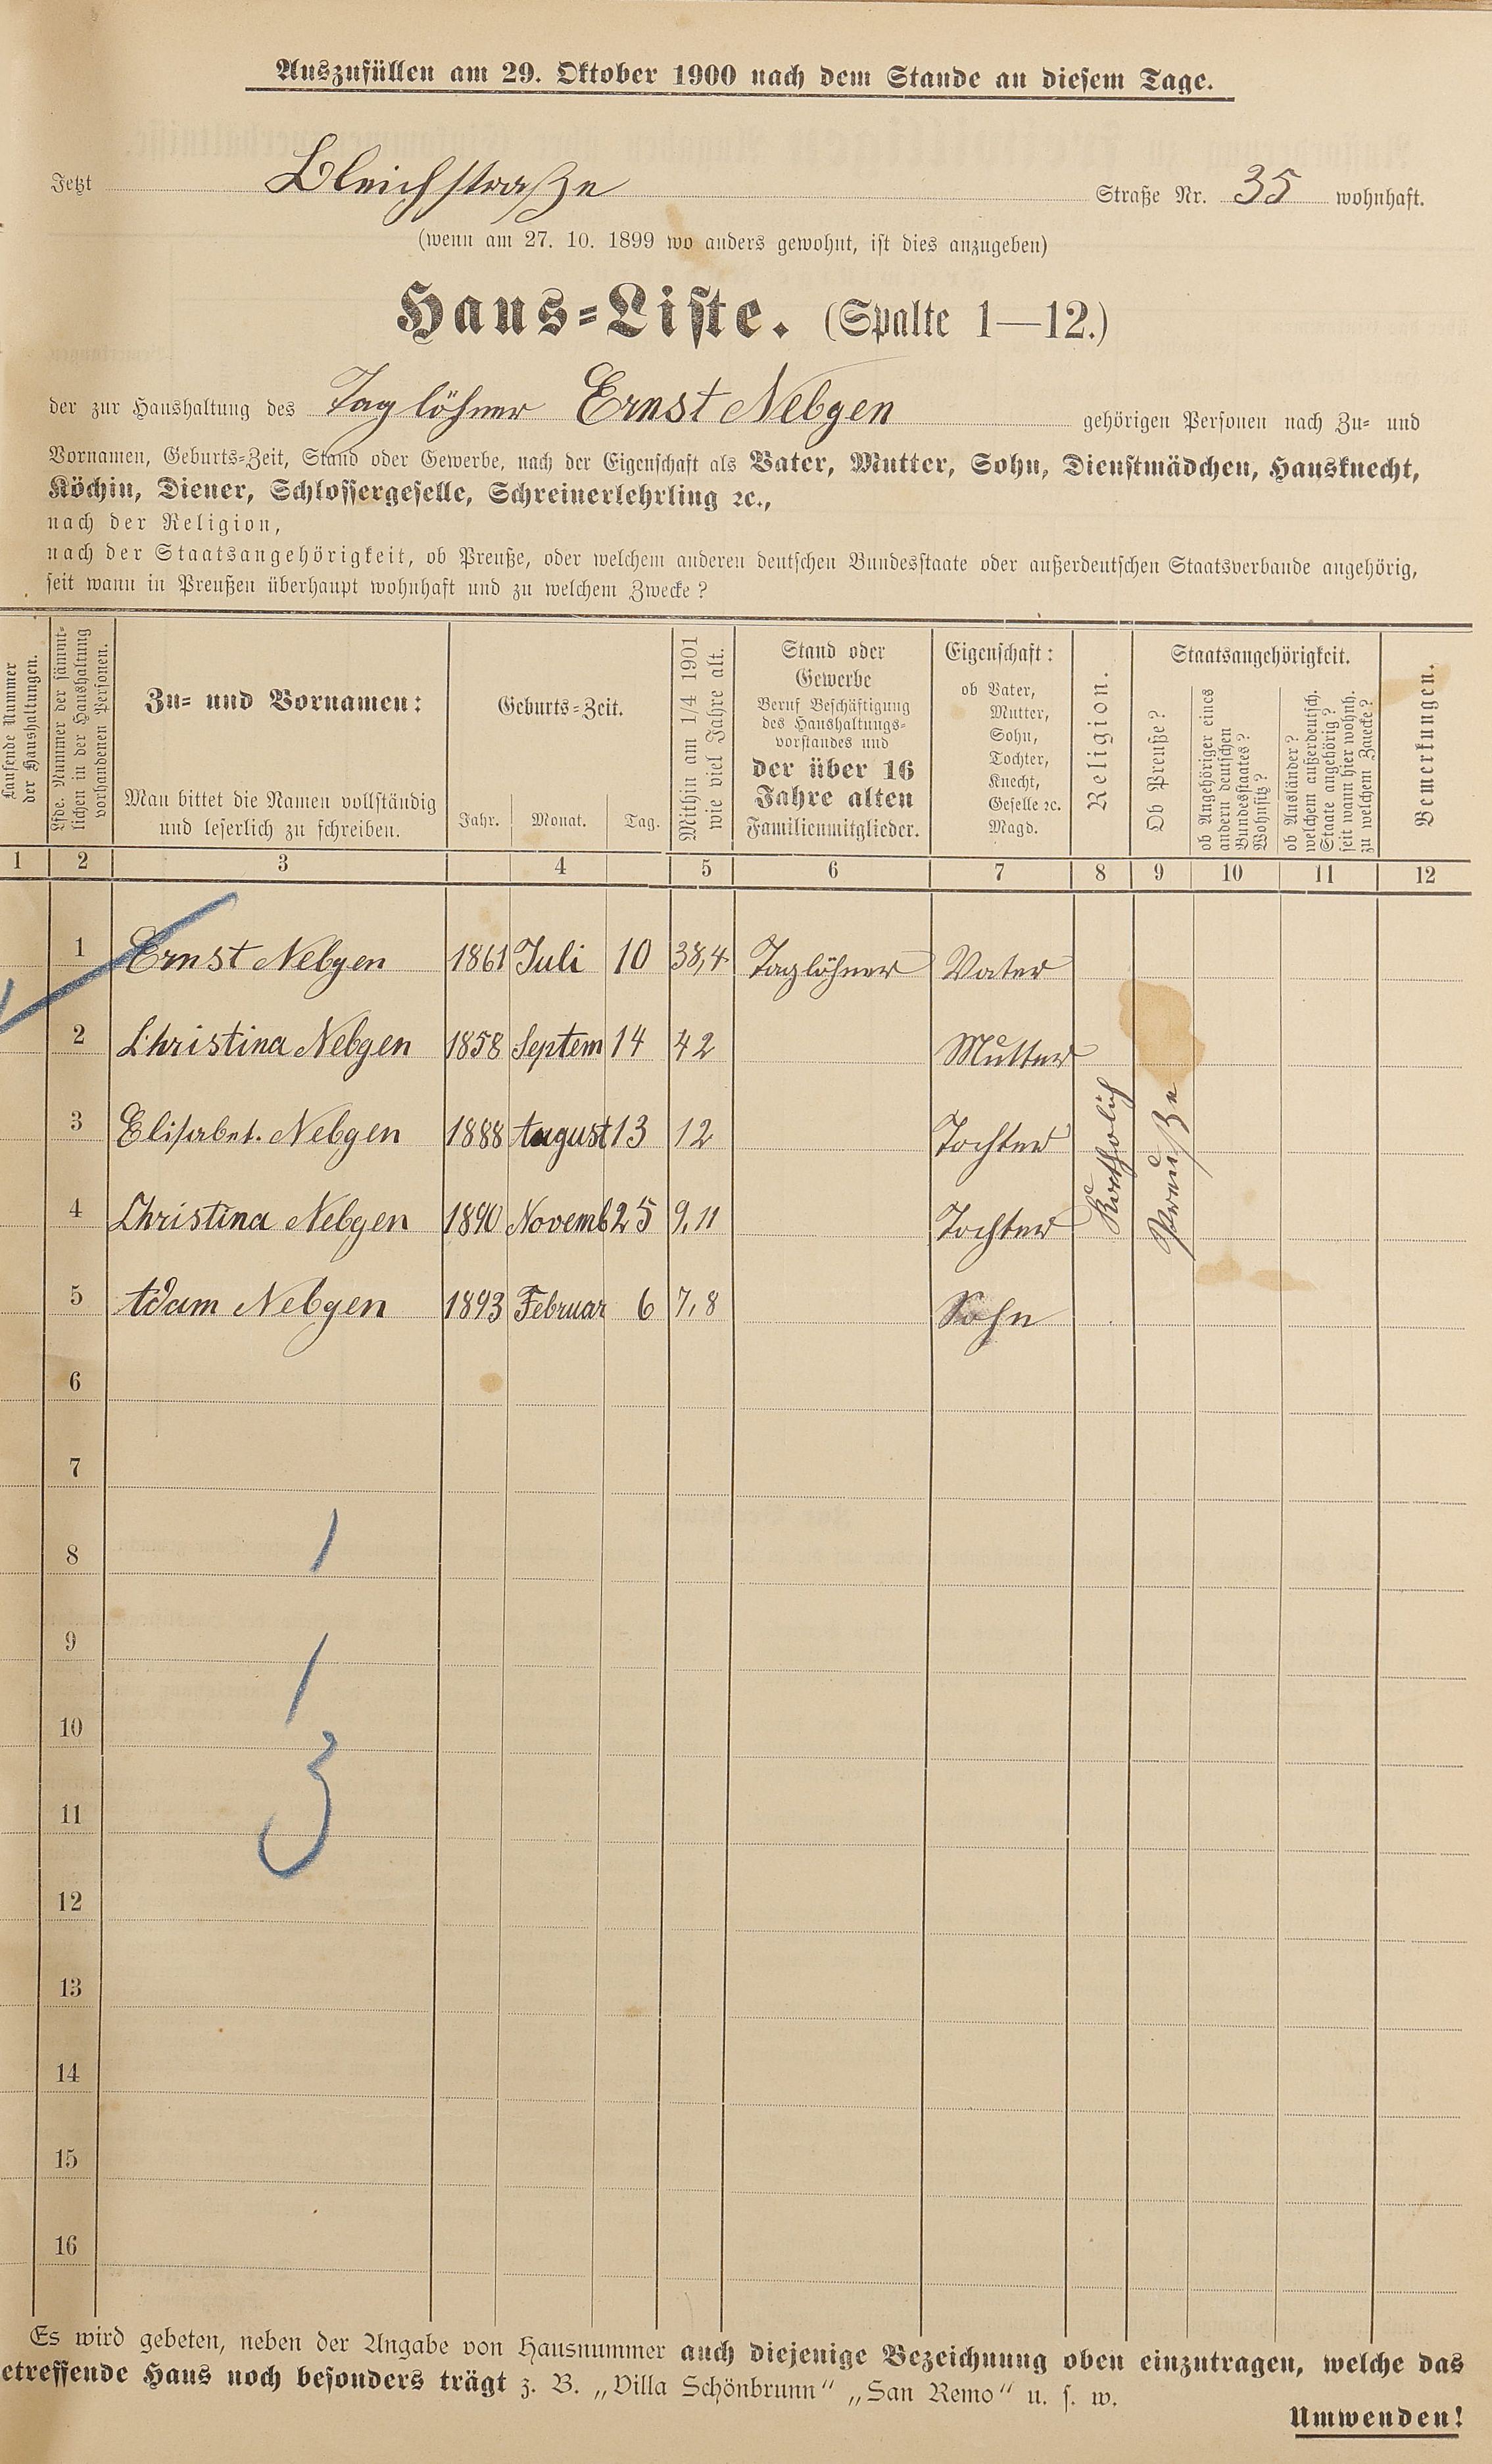 Auszufüllen am 29. Oktober 1900 nach dem Stande an diesem Tage.
Jetzt Bleichstraße Straße Nr. 35 wohnhaft.
(wenn am 27. 10. 1899 wo anders gewohnt, ist dies anzugeben)
Haus-Liste. (Spalte 1—12.)
der zur Haushaltung des Taglöhner Ernst Nebgen gehörigen Personen nach Zu- und
Vornamen, Geburts-Zeit, Stand oder Gewerbe, nach der Eigenschaft als Vater, Mutter, Sohn, Dienstmädchen, Hausknecht,
Köchin, Diener, Schlossergeselle, Schreinerlehrling ꝛc.,
nach der Religion,
nach der Staatsangehörigkeit, ob Preuße, oder welchem anderen deutschen Bundesstaate oder außerdeutschen Staatsverbande angehörig,
seit wann in Preußen überhaupt wohnhaft und zu welchem Zwecke?
Laufende Nummer
der Haushaltungen.
Lfde. Nummer der sämmt-
lichen in der Haushaltung
vorhandenen Personen.
Zu- und Vornamen:
Man bittet die Namen vollständig
und leserlich zu schreiben.
Geburts-Zeit.
Jahr. Monat. Tag.
Mithin am 1/4 1901
wie viel Jahre alt.
Stand oder
Gewerbe
Beruf Beschäftigung
des Haushaltungs-
vorstandes und
der über 16
Jahre alten
Familienmitglieder.
Eigenschaft:
ob Vater,
Mutter,
Sohn,
Tochter,
Knecht,
Geselle ꝛc.
Magd.
Religion.
Staatsangehörigkeit.
Ob Preuße?
ob Angehöriger eines
andern deutschen
Bundesstaates?
Wohnsitz?
ob Ausländer?
welchem außerdeutsch.
Staate angehörig?
seit wann hier wohnh.
zu welchem Zwecke?
Bemerkungen.
1 2 3 4 5 6 7 8 9 10 11 12
1 Ernst Nebgen 1861 Juli 10 38,4 Taglöhner Vater
2 Christina Nebgen 1858 Septem 14 42 Mutter
3 Elisabet. Nebgen 1888 August 13 12 Tochter
4 Christina Nebgen 1890 Novemb 25 9,11 Tochter
5 Adam Nebgen 1893 Februar 6 7,8 Sohn
Katholich
Preuße
6
7
8 1
9 1
10
11 3
12
13
14
15
16
Es wird gebeten, neben der Angabe von Hausnummer auch diejenige Bezeichnung oben einzutragen, welche das
etreffende Haus noch besonders trägt z. B. „Villa Schönbrunn“ „San Remo“ u. s. w.
Umwenden!